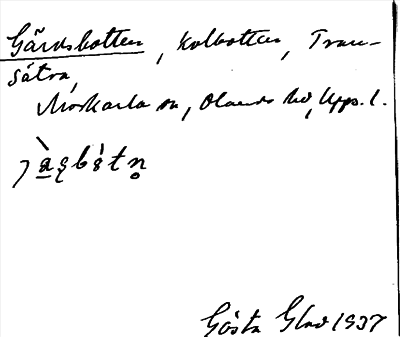 Gårdsbotten, Kolbotten, Tran-
sätra,
Morkarla sn, Olands hd, Upps. l.
Gösta Glad 1937